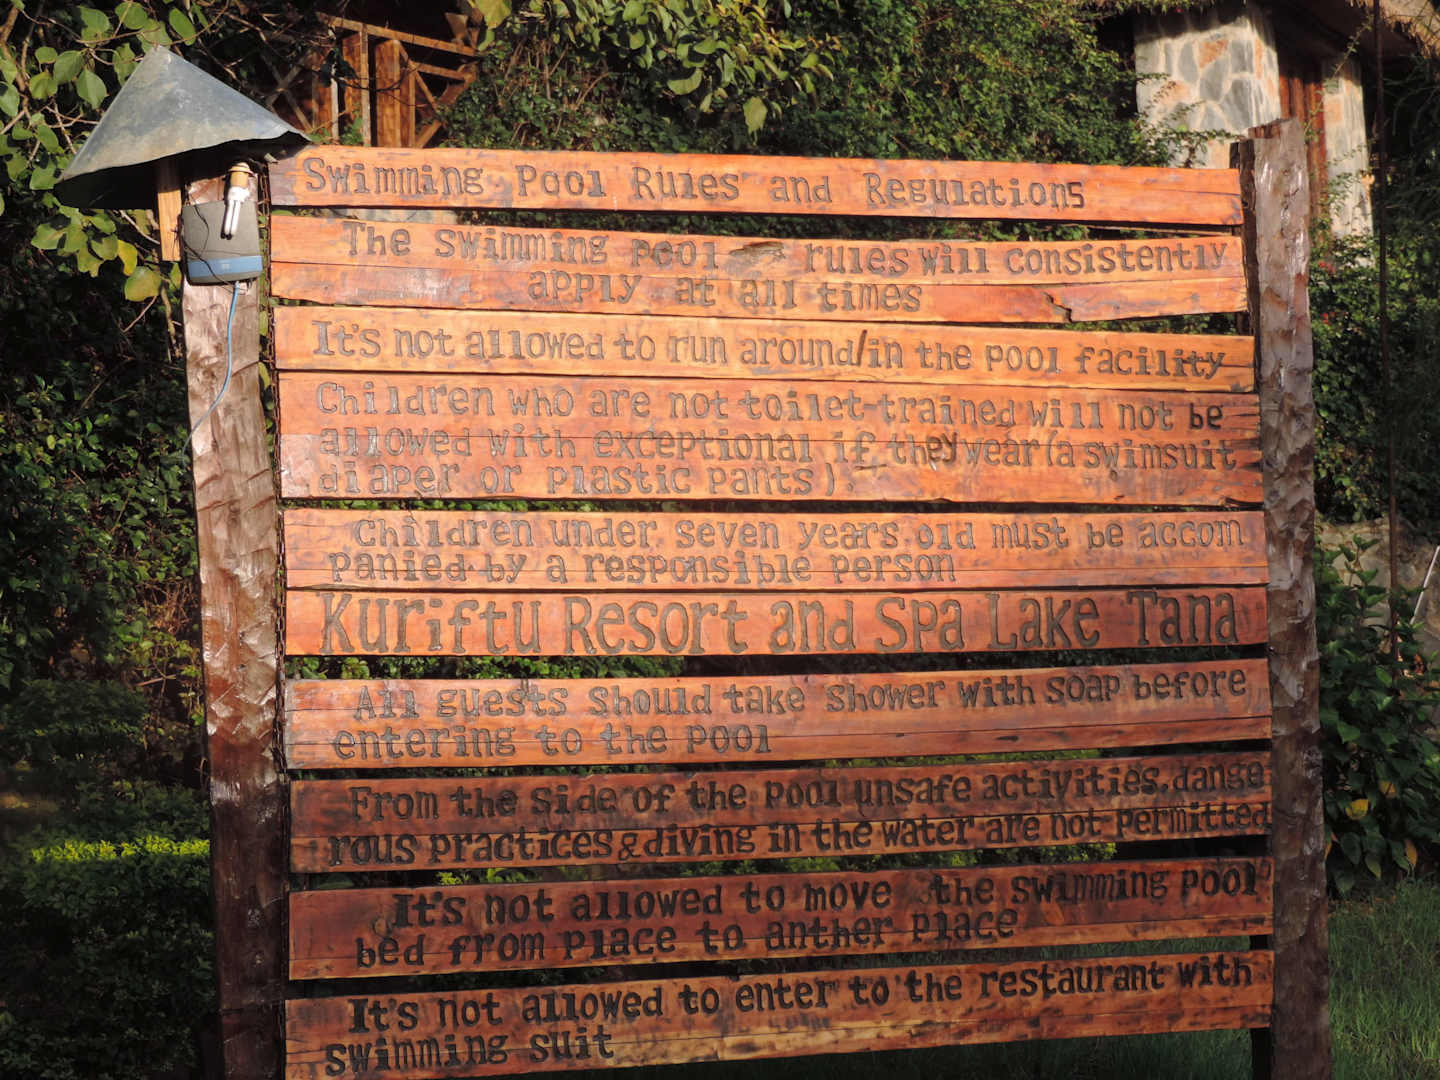 Swimming Pool Rules and Regulations
The swimming pool rules will consistently
apply at all times
It's not allowed to run around/in the pool facility
Children who are not toilet-trained will not be
allowed with exceptional if they wear (a swimsuit
diaper or plastic pants).
Children under seven years old must be accom
panied by a responsible person
Kuriftu Resort and Spa Lake Tana
All guests should take shower with soap before
entering to the pool
From the side of the pool unsafe activities, dange
rous practices & diving in the water are not permitted
It's not allowed to move the swimming pool
bed from place to anther place
It's not allowed to enter to the restaurant with
swimming suit